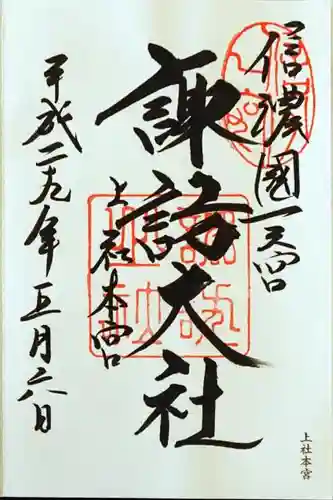 信濃國一之宮
諏訪大社
上社本宮
平成二九年五月六日
上社本宮